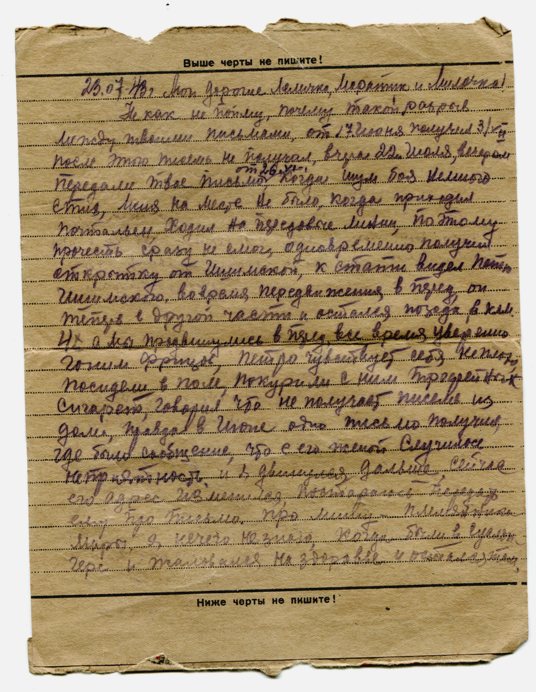 Выше черты не пишите!
23.07.43г Мои дорогие Ляличка, Маратик и Милочка!
Ни как не пойму, почему такой разрыв
между твоими письмами, от 17 Июня получил 3/VII
после этого писем не получал, вчера 22 Июля, вечером
передали твое письмо, от 26.VI, когда шум боя немного
стих, меня на месте не было, когда приходил
почтальон ходил на передовые линии, поэтому
прочесть сразу не смог, одновременно получил
открытку от Ишимской, к стати видел Петю
Ишимского, во время передвижения в перед, он
теперь в другой части и остался позади в км
4х а мы продвинулись в перед, все время уверенно
гоним фрицов, Петро чувствует себя неплохо,
посидели в поле, покурили с ним трофейных
сигарет, говорил что не получает писем из
дома, правда в Июле одно письмо получил,
где было сообщение, что с его женой случилась
неприятность, и я двинулся дальше, сейчас
его адрес изменился постараюсь передать
ему про письмо. Про Мишу - племянника
Миры, я нечего не знаю, когда были в
гере и жаловался на здоровье и остался там,
Ниже черты не пишите!